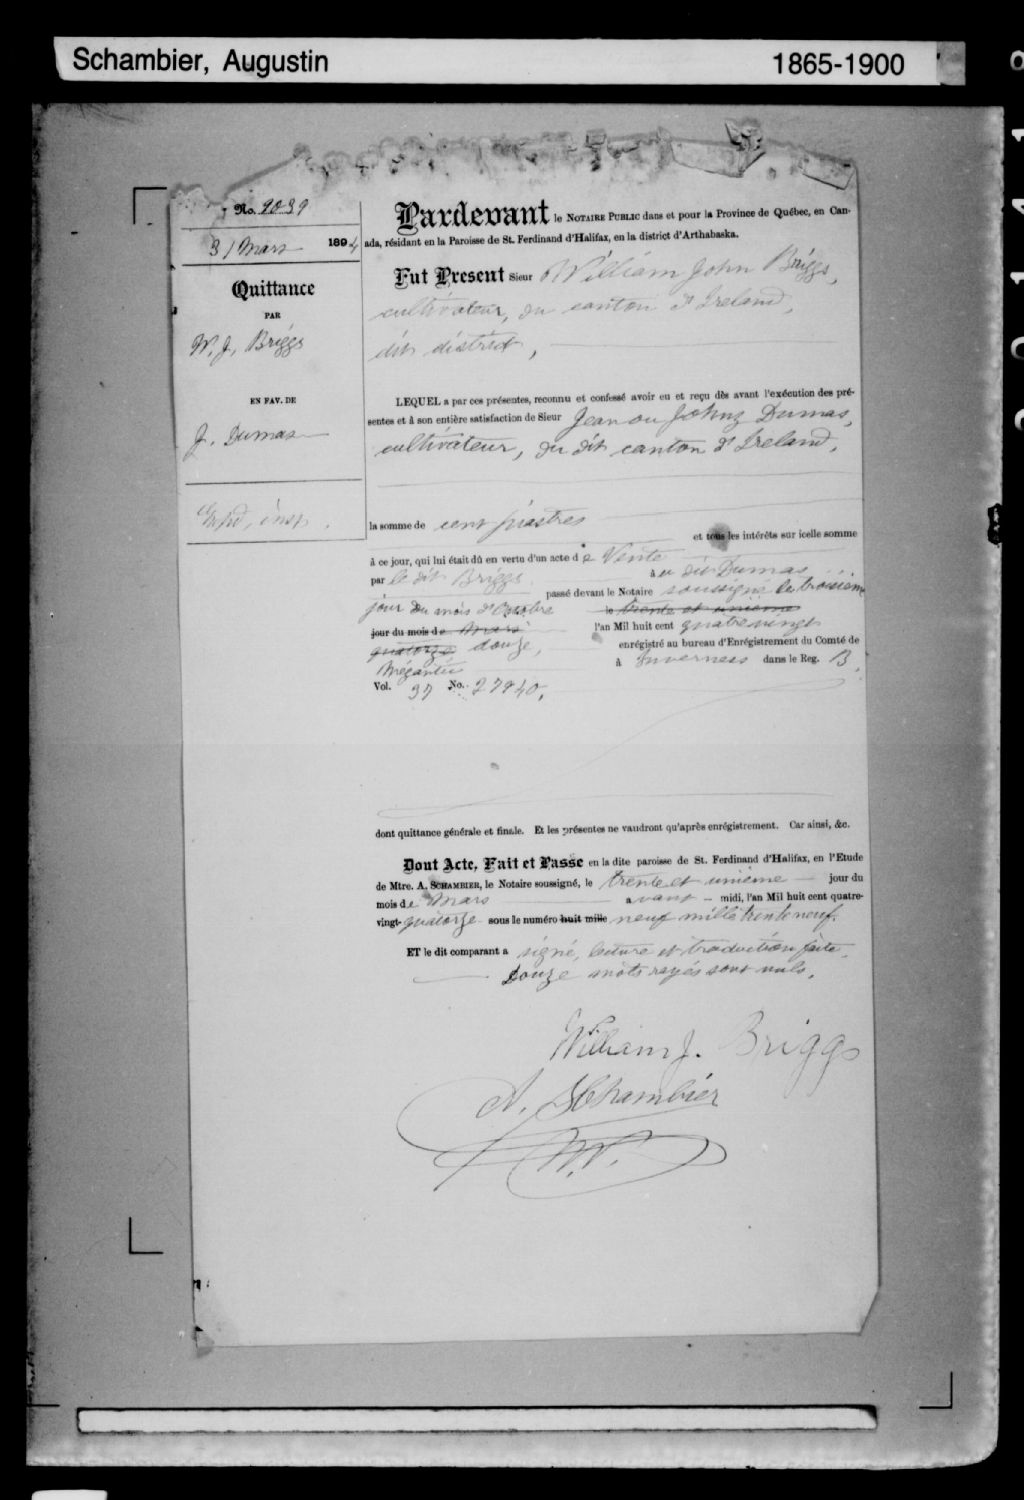 Schambier, Augustin
1865-1900
No. 9039
31 Mars 1894
Quittance
PAR
W. J. Briggs
EN FAV. DE
J. Dumas
Pardevant le NOTAIRE PUBLIC dans et pour la Province de Québec, en Can-
ada, résidant en la Paroisse de St. Ferdinand d'Halifax, en la district d'Arthabaska.
Fut Present Sieur William John Briggs,
cultivateur, du canton d'Ireland,
dit district,
LEQUEL a par ces présentes, reconnu et confessé avoir eu et reçu dès avant l'exécution des pré-
sentes et à son entière satisfaction de Sieur Jean ou Johny Dumas,
cultivateur, du dit canton d'Ireland,
la somme de cent piastres
et tous les intérêts sur icelle somme
à ce jour, qui lui était dû en vertu d'un acte de Vente
par le dit Briggs à u dit Dumas
passé devant le Notaire soussigné le troisième
jour du mois d'Octobre le trente et unième
jour du mois de Mars l'an Mil huit cent quatrevingt
quatorze douze, enrégistré au bureau d'Enrégistrement du Comté de
Mégantic à Inverness dans le Reg. B,
Vol. 37 No. 27840,
dont quittance générale et finale. Et les présentes ne vaudront qu'après enrégistrement. Car ainsi, &c.
Dont Acte, Fait et Passe en la dite paroisse de St. Ferdinand d'Halifax, en l'Etude
de Mtre. A. SCHAMBIER, le Notaire soussigné, le trente et unième jour du
mois de Mars avant - midi, l'an Mil huit cent quatre-
vingt-quatorze sous le numéro huit mille neuf mille trente neuf.
ET le dit comparant a signé, lecture et traduction faite.
Douze mots rayés sont nuls.
William J. Briggs
A. Schambier
N.P.